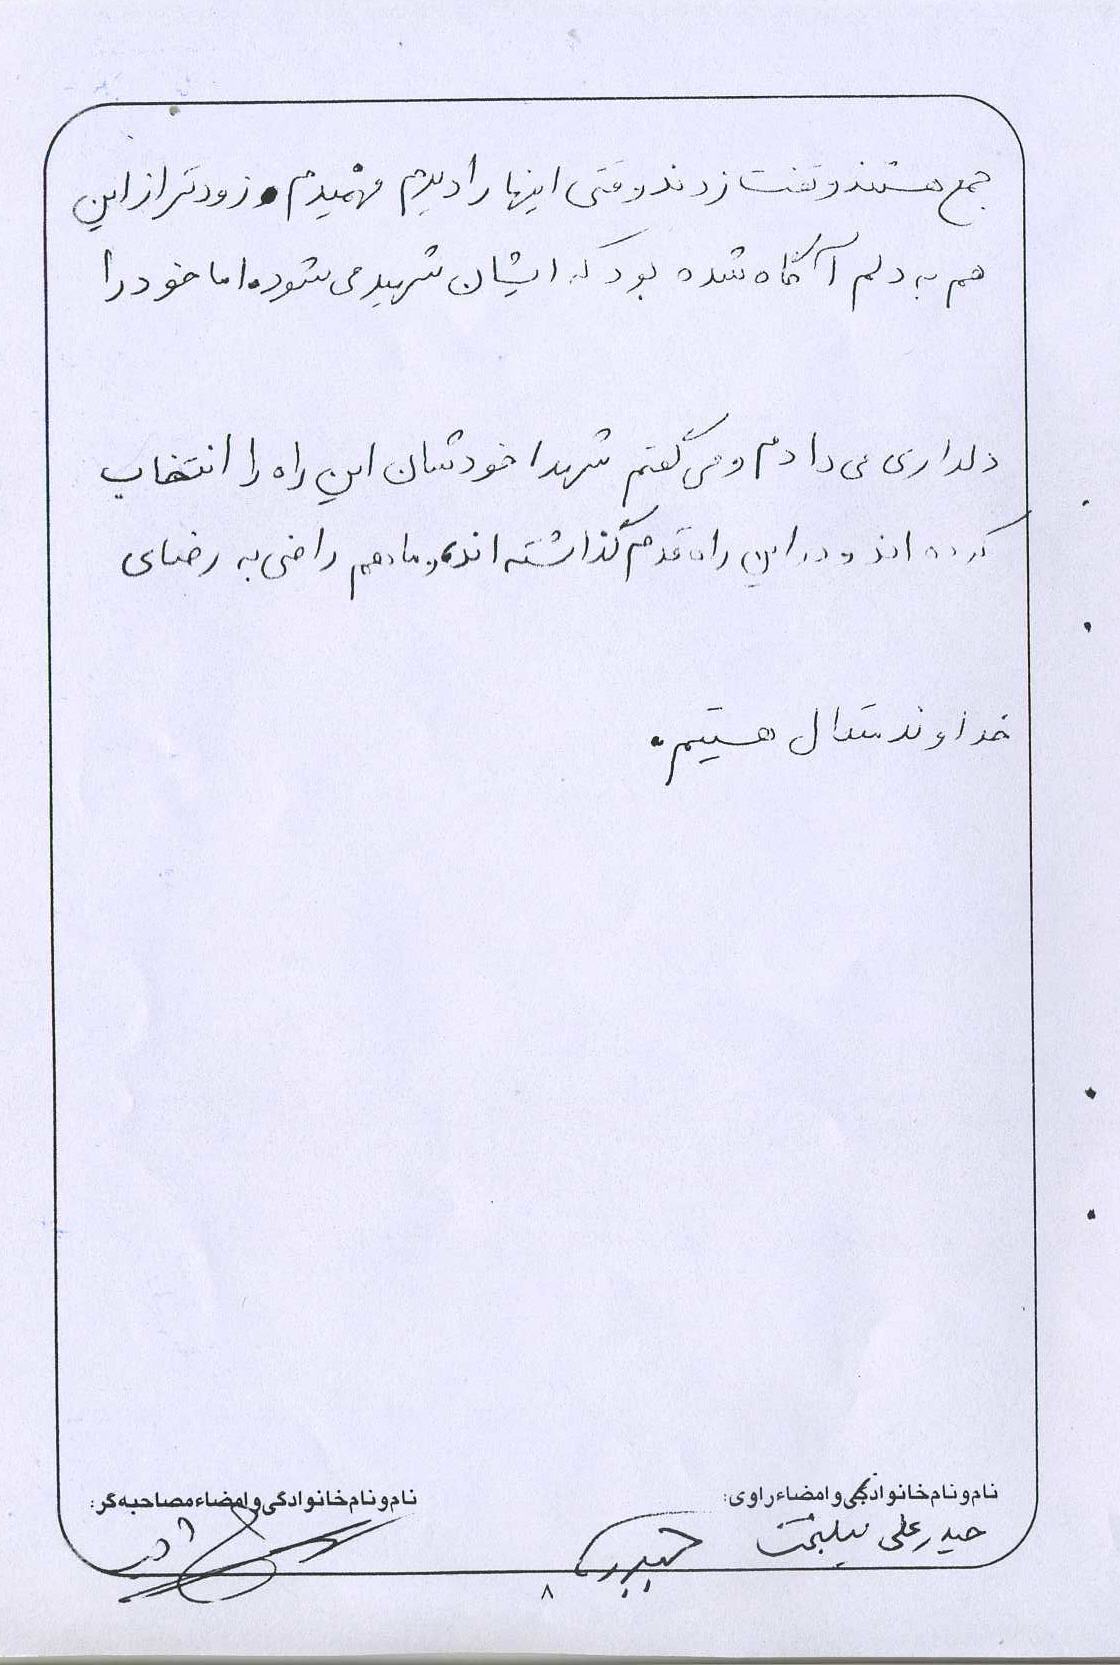 جمع هستند و تخت زدند وقتی اینها را دیدم فهمیدم و زودتر از این
هم به دلم آگاه شده بود که ایشان شهید می شود. اما خود را
دلداری می دادم و می گفتم شهدا خودشان این راه را انتخاب
کرده اند و در این راه قدم گذاشته اند و ما هم راضی به رضای
خداوند متعال هستیم.
نام و نام خانوادگی و امضاء راوی:
نام و نام خانوادگی و امضاء مصاحبه گر:
حیدر علی
۸